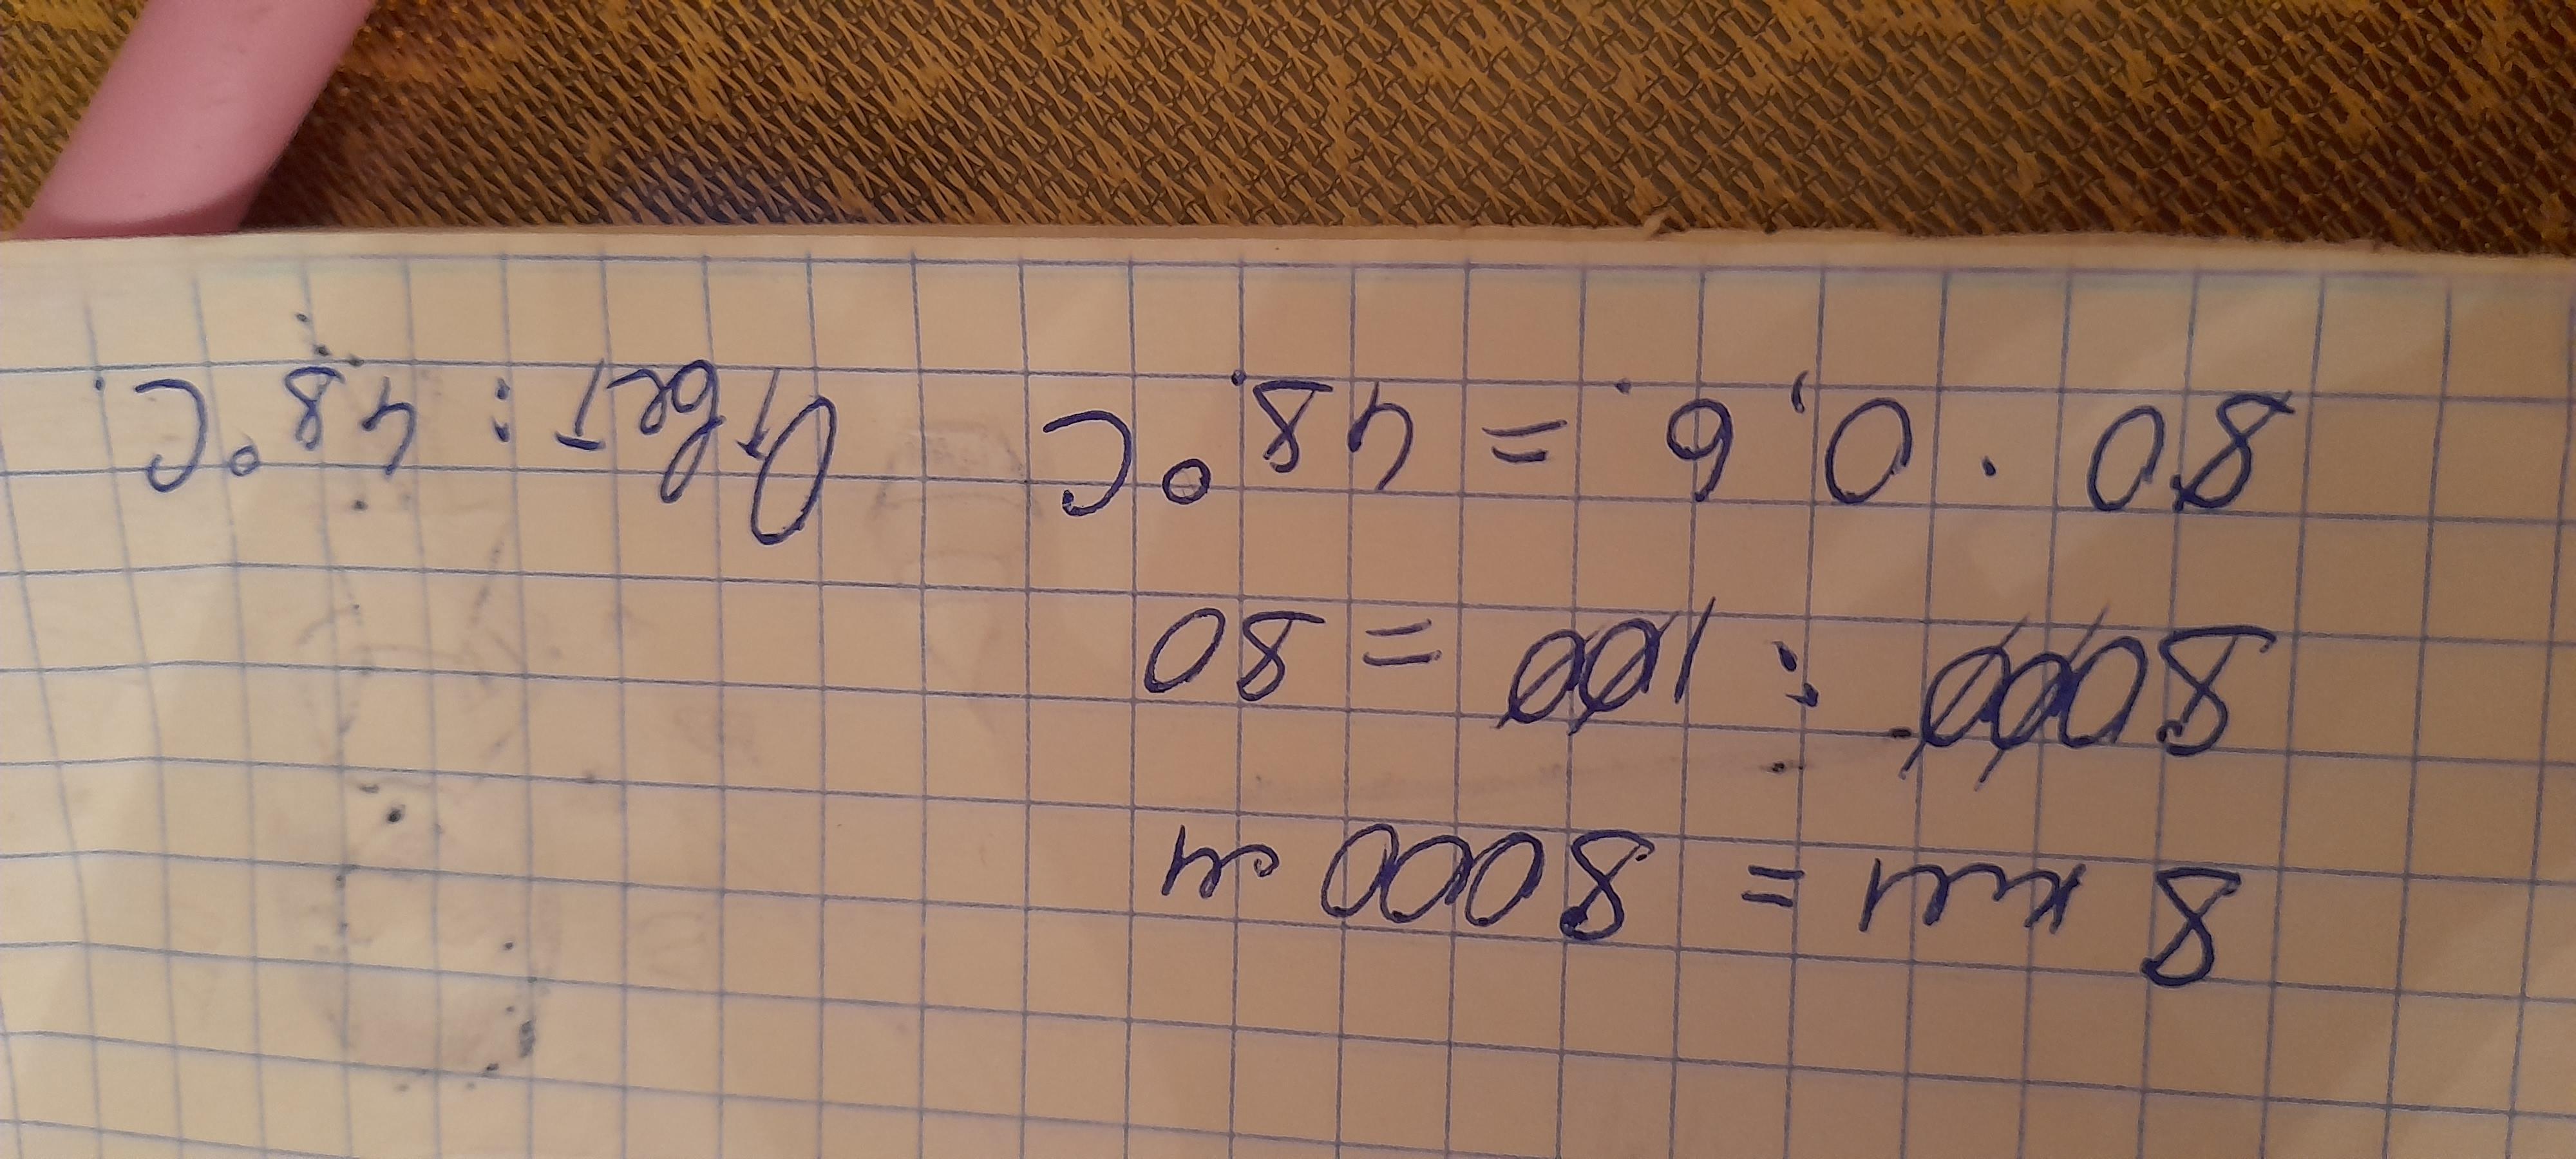 8 км = 8000 м
8000 : 100 = 80
80 · 0,6 = 48 °C Ответ: 48 °C.